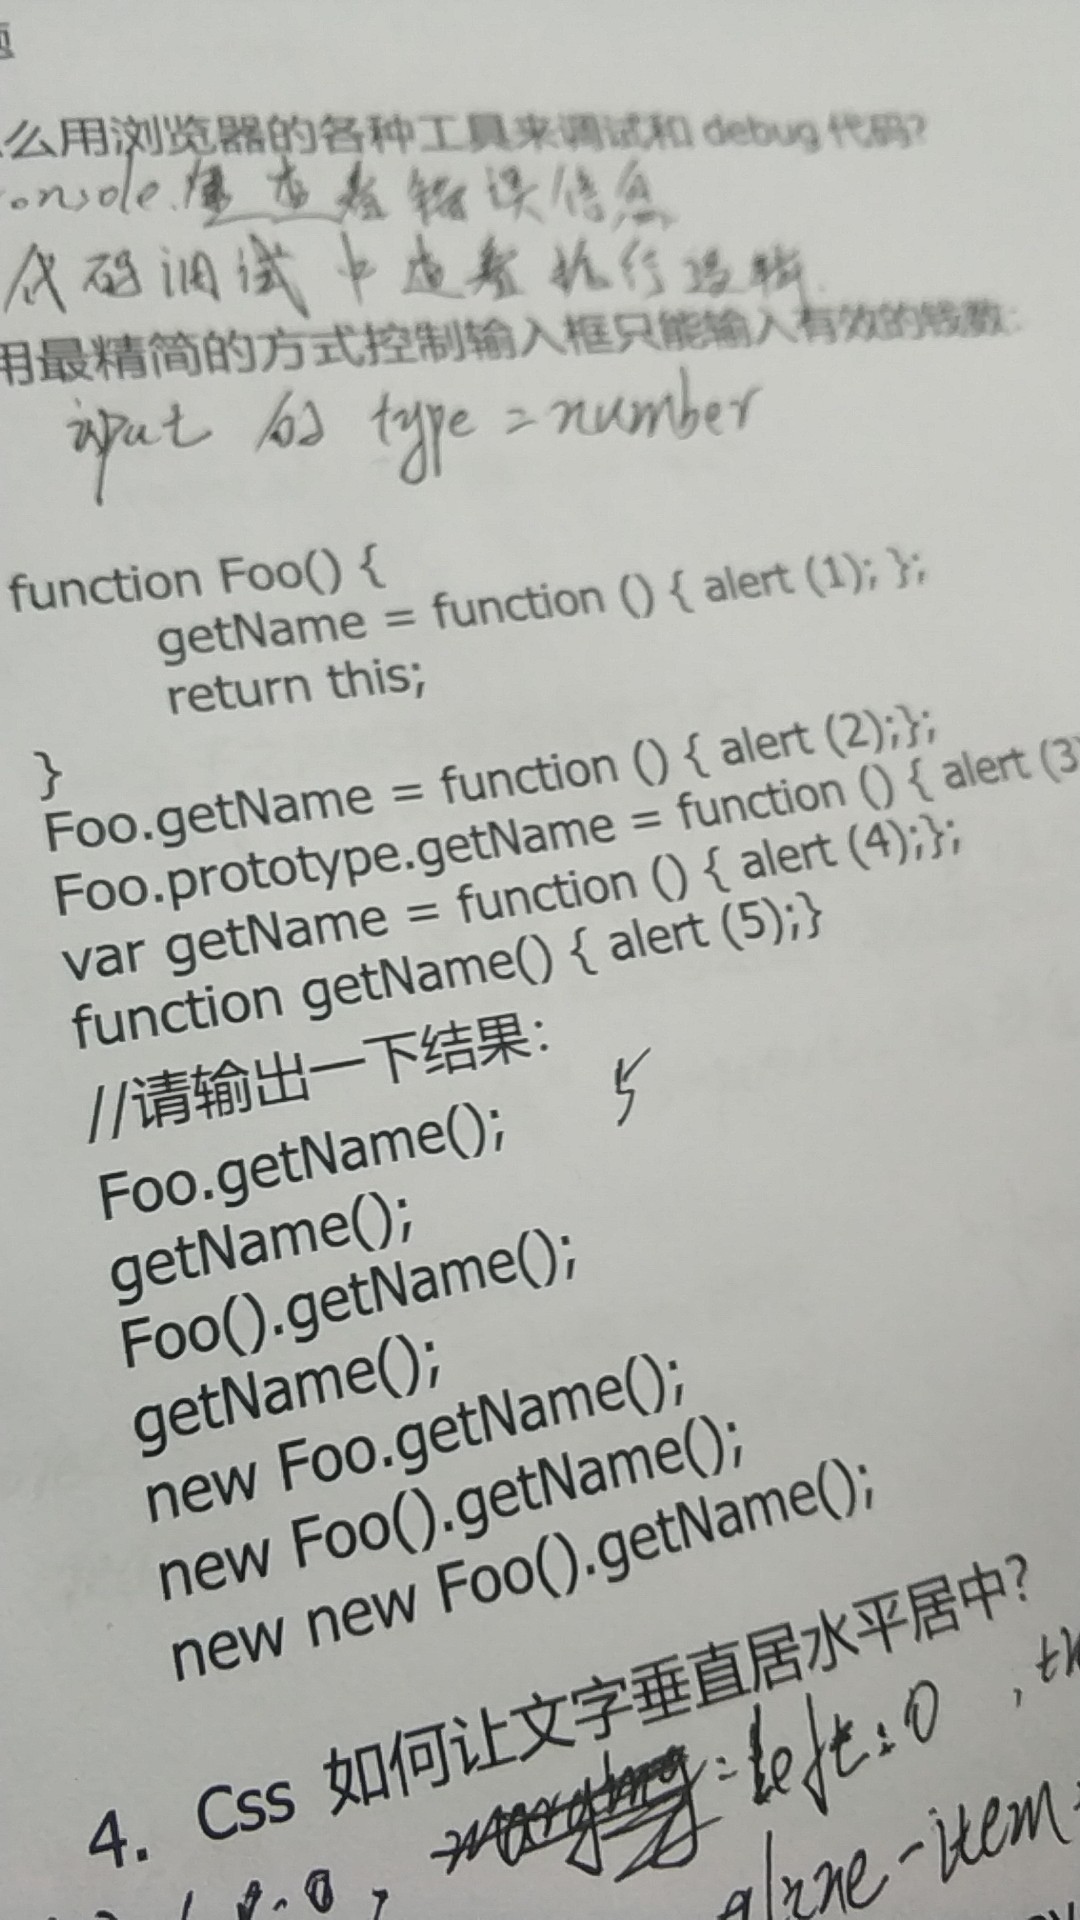 么用浏览器的各种工具来调试和 debug 代码?
查看错误信息
代码调试中查看执行逻辑.
用最精简的方式控制输入框只能输入有效的钱数:
input 的 type = number
function Foo() {
getName = function () { alert (1); };
return this;
}
Foo.getName = function () { alert (2);};
Foo.prototype.getName = function () { alert (3
var getName = function () { alert (4);};
function getName() { alert (5);}
//请输出一下结果:
5
Foo.getName();
getName();
Foo().getName();
getName();
new Foo.getName();
new Foo().getName();
new new Foo().getName();
4. Css 如何让文字垂直居水平居中?
: left:0 ,